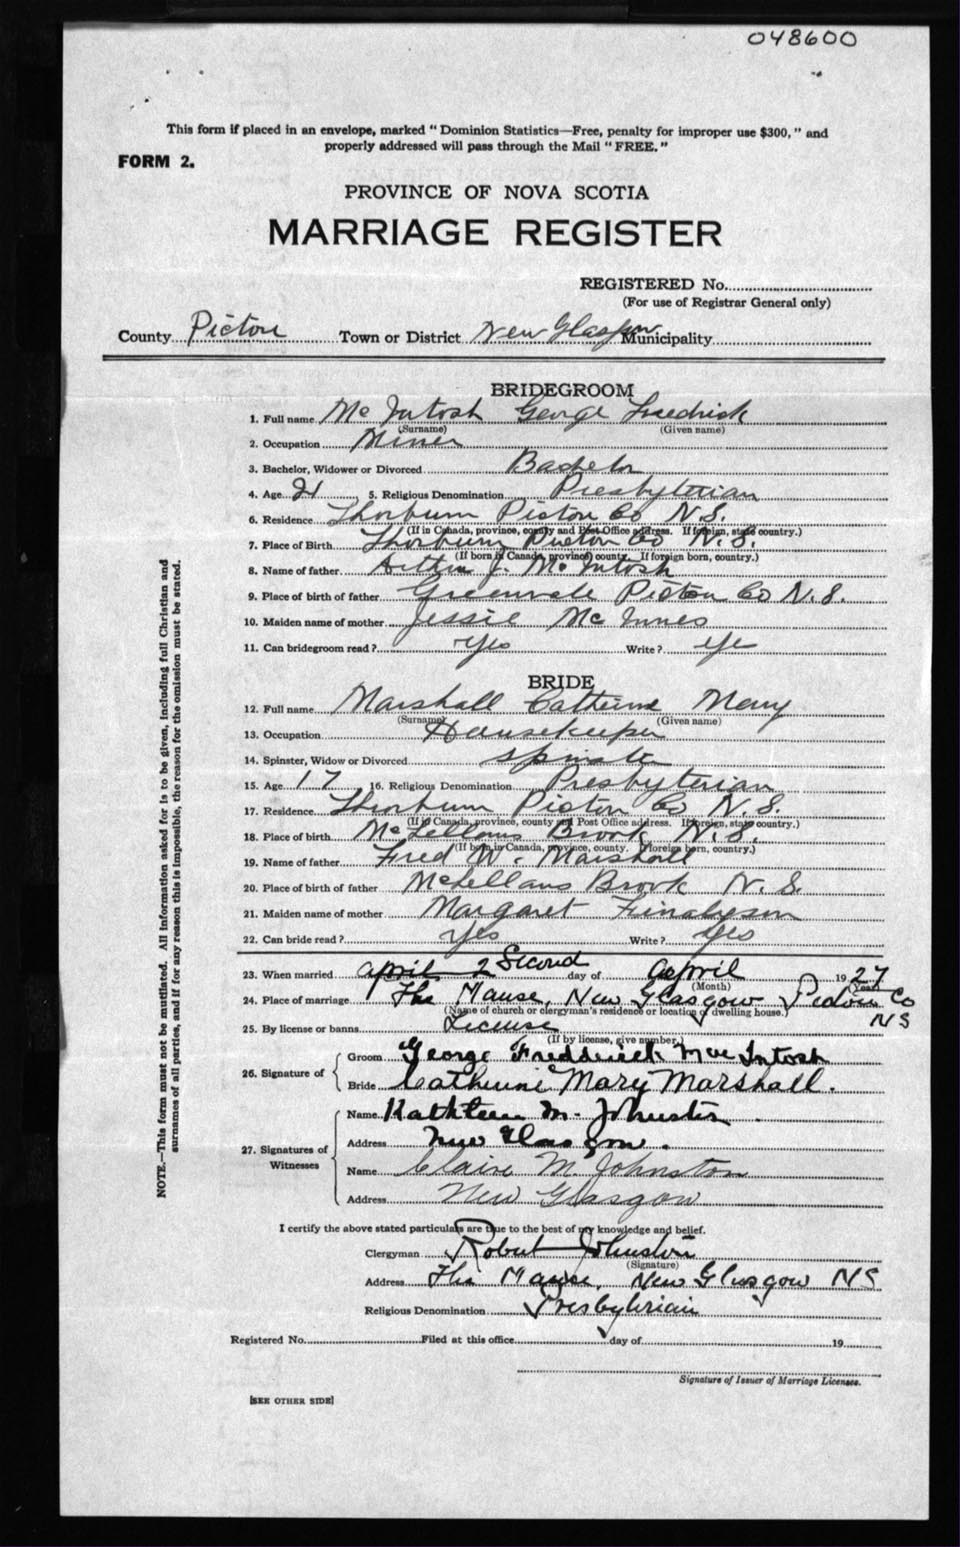 048600
This form if placed in an envelope, marked "Dominion Statistics—Free, penalty for improper use $300," and
properly addressed will pass through the Mail "FREE."
FORM 2.
PROVINCE OF NOVA SCOTIA
MARRIAGE REGISTER
REGISTERED No.
(For use of Registrar General only)
County Pictou Town or District New Glasgow Municipality
BRIDEGROOM
1. Full name McIntosh George Fredrick
(Surname) (Given name)
2. Occupation Miner
3. Bachelor, Widower or Divorced Bachelor
4. Age 21 5. Religious Denomination Presbyterian
6. Residence Thorburn Pictou Co N.S.
(If in Canada, province, county and Post Office address. If foreign, state country.)
7. Place of Birth Thorburn Pictou Co N.S.
(If born in Canada, province, county. If foreign born, country.)
8. Name of father J. McIntosh
9. Place of birth of father Greenvale Pictou Co N.S.
10. Maiden name of mother Jessie McInnes
11. Can bridegroom read? Yes Write? Yes
BRIDE
12. Full name Marshall Catherine Mary
(Surname) (Given name)
13. Occupation Housekeeper
14. Spinster, Widow or Divorced Spinster
15. Age 17 16. Religious Denomination Presbyterian
17. Residence Thorburn Pictou Co N.S.
(If in Canada, province, county and Post Office address. If foreign, state country.)
18. Place of birth McLellans Brook N.S.
(If born in Canada, province, county. If foreign born, country.)
19. Name of father Fred W. Marshall
20. Place of birth of father McLellans Brook N.S.
21. Maiden name of mother Margaret Finlayson
22. Can bride read? Yes Write? Yes
23. When married April 2 Second day of April 1927
(Month) (Year)
24. Place of marriage The Manse, New Glasgow Pictou Co
NS
(Name of church or clergyman's residence or location of dwelling house.)
25. By license or banns License
(If by license, give number.)
26. Signature of
Groom George Fredderick MacIntosh
Bride Catherine Mary Marshall.
27. Signatures of Witnesses
Name Kathleen M. Johnston
Address New Glasgow.
Name Claire M. Johnston
Address New Glasgow
I certify the above stated particulars are true to the best of my knowledge and belief.
Clergyman Robert Johnston
(Signature)
Address The Manse, New Glasgow NS
Religious Denomination Presbyterian
Registered No. Filed at this office day of 19
Signature of Issuer of Marriage Licenses.
[SEE OTHER SIDE]
NOTE.—This form must not be mutilated. All information asked for is to be given, including full Christian and
surnames of all parties, and if for any reason this is impossible, the reason for the omission must be stated.